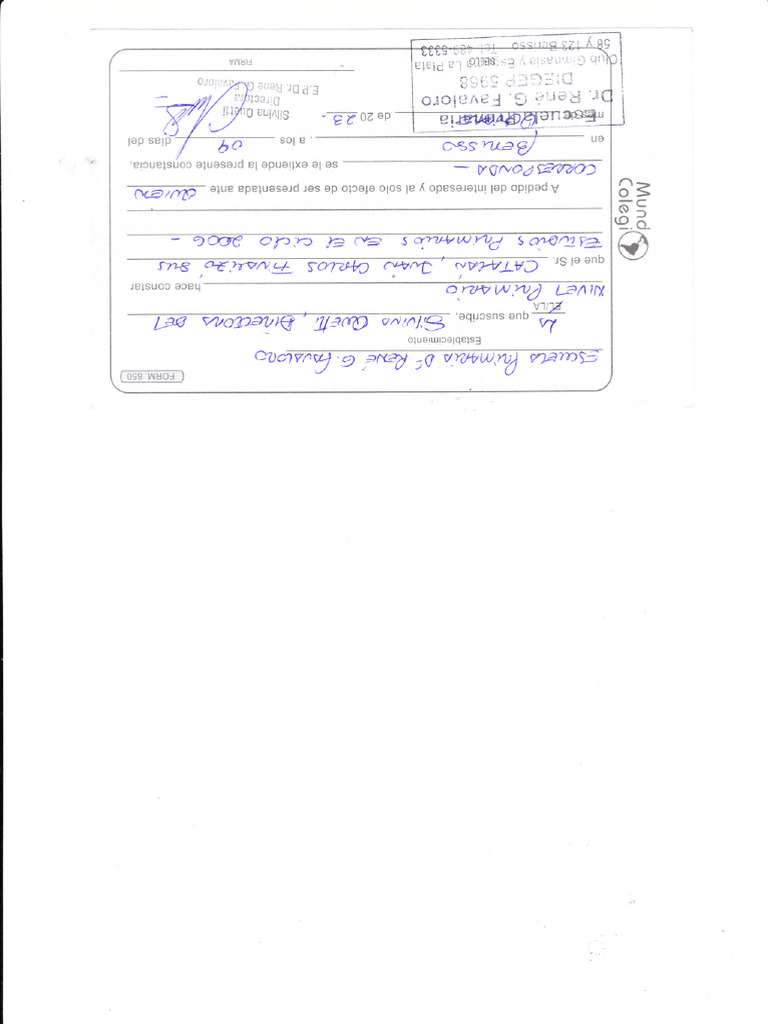 FORM. 850
Escuela Primaria Dr René G. Favaloro
Establecimiento
La que suscribe, Silvina Quetti, Directora del
EL/LA
Nivel Primario hace constar
que el Sr. CATALÁN, JUAN CARLOS Finalizó sus
Estudios Primarios en el ciclo 2006 -
A pedido del interesado y al solo efecto de ser presentada ante quien
corresponda - se le extiende presente constancia,
en Berisso, a los 04 días del
mes de de 2023-
Silvina Quetti
Directora
E.P Dr. René G. Favaloro
FIRMA
Escuela Primaria
Dr. René G. Favaloro
DIEGEP 5968
Club Gimnasia y Esgrima La Plata
SELLO
58 y 123 Berisso Tel.
Mundo
Colegi